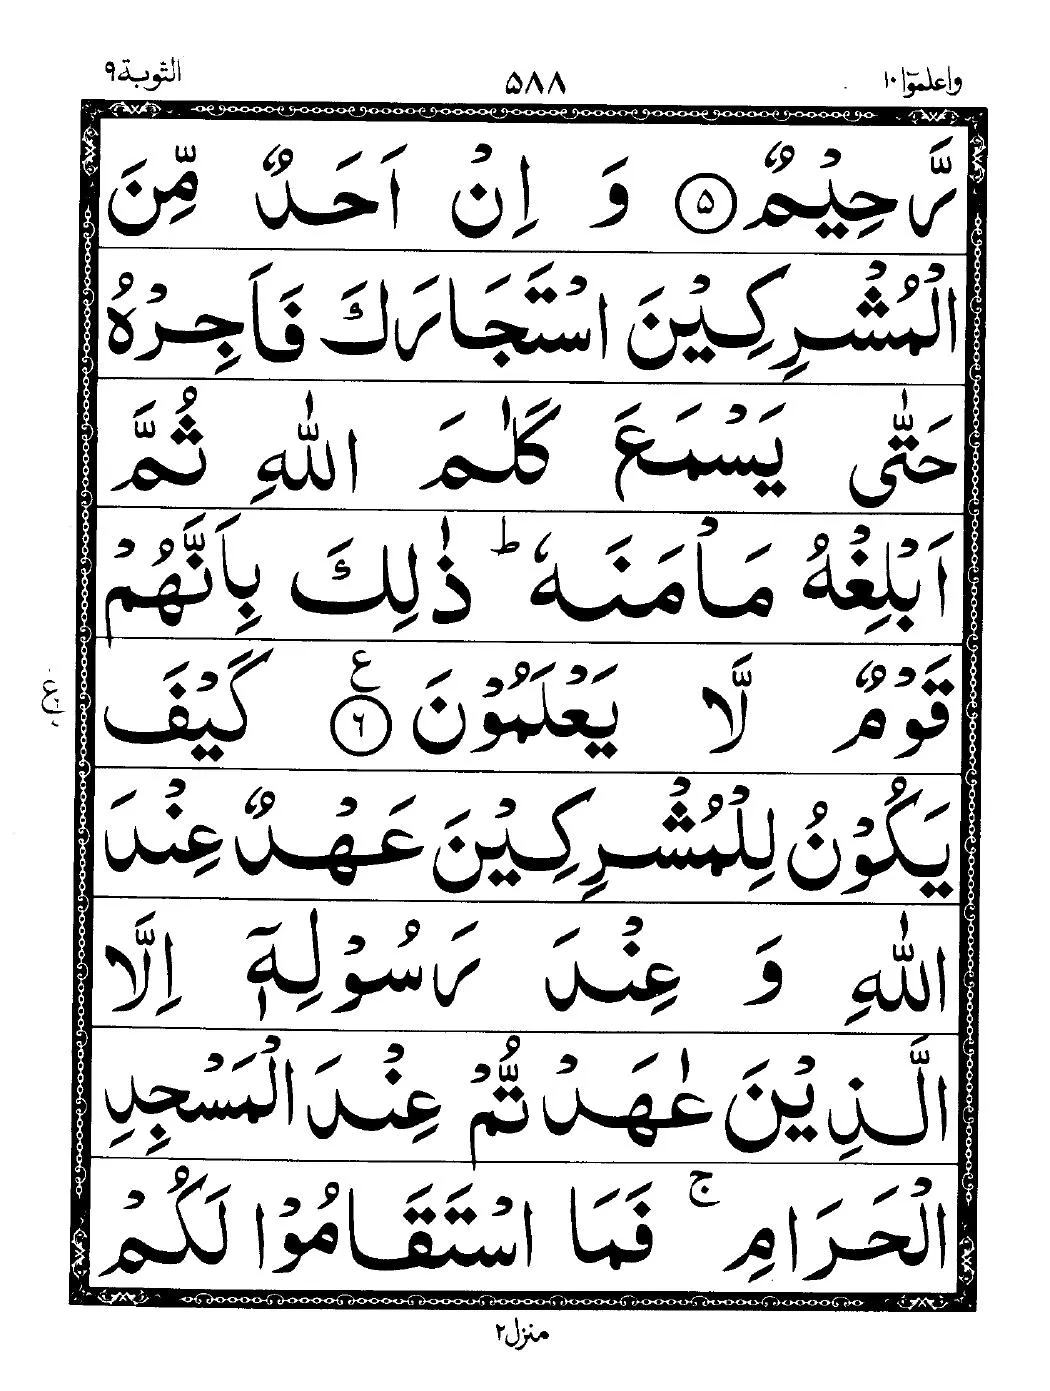 واعلموٓا ١٠ ۵۸۸ التوبة ٩
رَّحِيْمٌ ۵ وَ اِنْ اَحَدٌ مِّنَ
الْمُشْرِكِيْنَ اسْتَجَارَكَ فَاَجِرْهُ
حَتّٰى يَسْمَعَ كَلٰمَ اللّٰهِ ثُمَّ
اَبْلِغْهُ مَاْمَنَهٗ ؕ ذٰلِكَ بِاَنَّهُمْ
قَوْمٌ لَّا يَعْلَمُوْنَ ٦ ع كَيْفَ
يَكُوْنُ لِلْمُشْرِكِيْنَ عَهْدٌ عِنْدَ
اللّٰهِ وَ عِنْدَ رَسُوْلِهٖٓ اِلَّا
الَّذِيْنَ عٰهَدْتُّمْ عِنْدَ الْمَسْجِدِ
الْحَرَامِ ۚ فَمَا اسْتَقَامُوْا لَكُمْ
منزل ٢